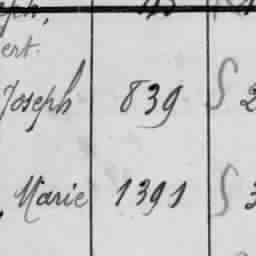 ert.
Joseph 839 S 2
, Marie 1391 S 3